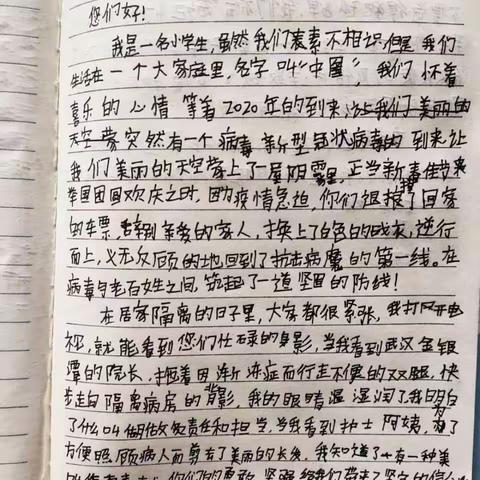 您们好!
我是一名小学生,虽然我们素不相识,但是我们
生活在一个大家庭里,名字叫“中国”,我们怀着
喜乐的心情等着2020年的到来,让我们美丽的
天空蒙突然有一个病毒新型冠状病毒的到来让
我们美丽的天空蒙上了一层阴霾,正当新春佳节来
举国团圆欢庆之时,因为疫情急迫,你们退掉了回家
的车票,辞别亲爱的家人,换上了白色的战衣,逆行
而上,义无反顾的地回到了抗击病魔的第一线。在
病毒与老百姓之间,筑起了一道坚固的防线!
在居家隔离的日子里,大家都很紧张,我打开电
视,就能看到您们忙碌的身影,当我看到武汉金银
潭的院长,拖着因渐冻症而行走不便的双腿,快
步走向隔离病房的背影,我的眼睛湿湿润了,我明白
了什么叫做责任和担当,当我看到护士阿姨,为了
方便照顾病人而剪去了美丽的长发,我知道了有一种美
叫作 你们的勇敢、坚强给我们带来了坚定的信心